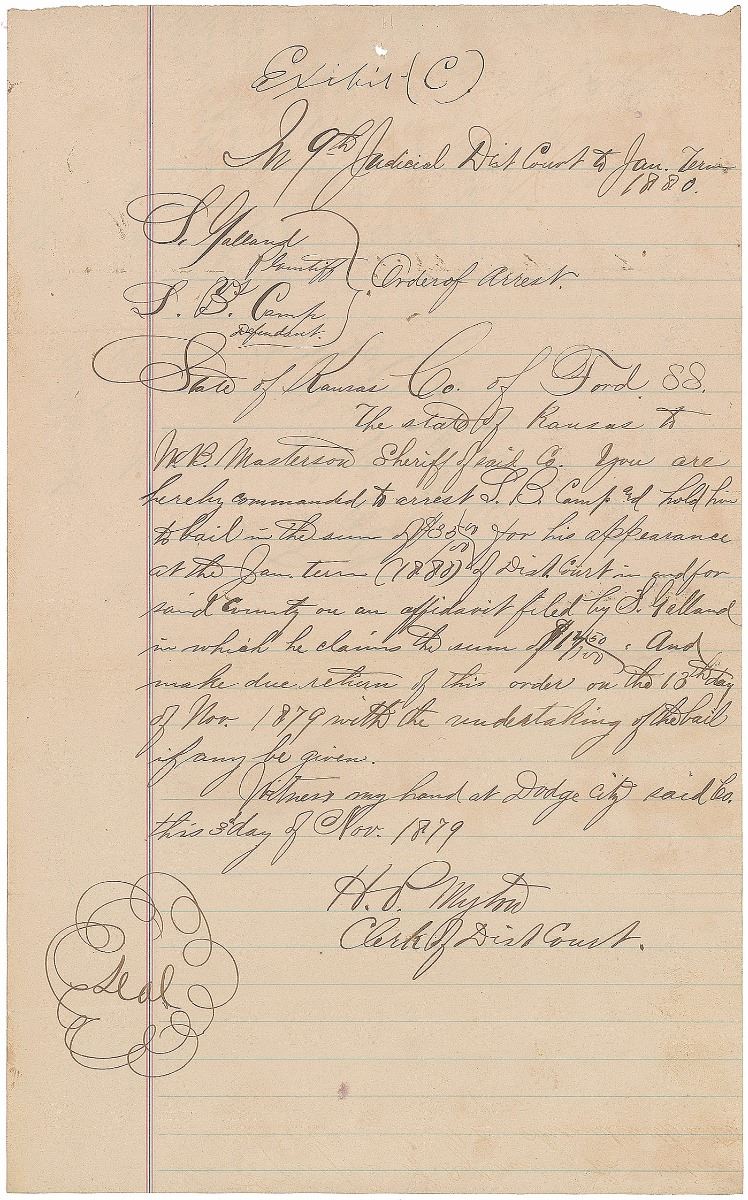 Exibit (C)
In 9th Judicial Dist Court to Jan. Term
1880.
S. Galland
Plaintiff
vs
S. B. Camp
Defendant.
Order of Arrest.
State of Kansas Co. of Ford SS.
The state of Kansas to
W.B. Masterson Sheriff of said Co. You are
hereby commanded to arrest S. B. Camp and hold him
to bail in the sum of $35 00/100 for his appearance
at the Jan. term (1880) of Dist. Court in and for
said County on an affidavit filed by S. Galland
in which he claims the sum of : And
make due return of this order on the 13th day
of Nov. 1879 with the undertaking of the bail
if any be given.
Witness my hand at Dodge City said Co.
this 3d day of Nov. 1879
H. P. Myton
Clerk of Dist Court.
Seal